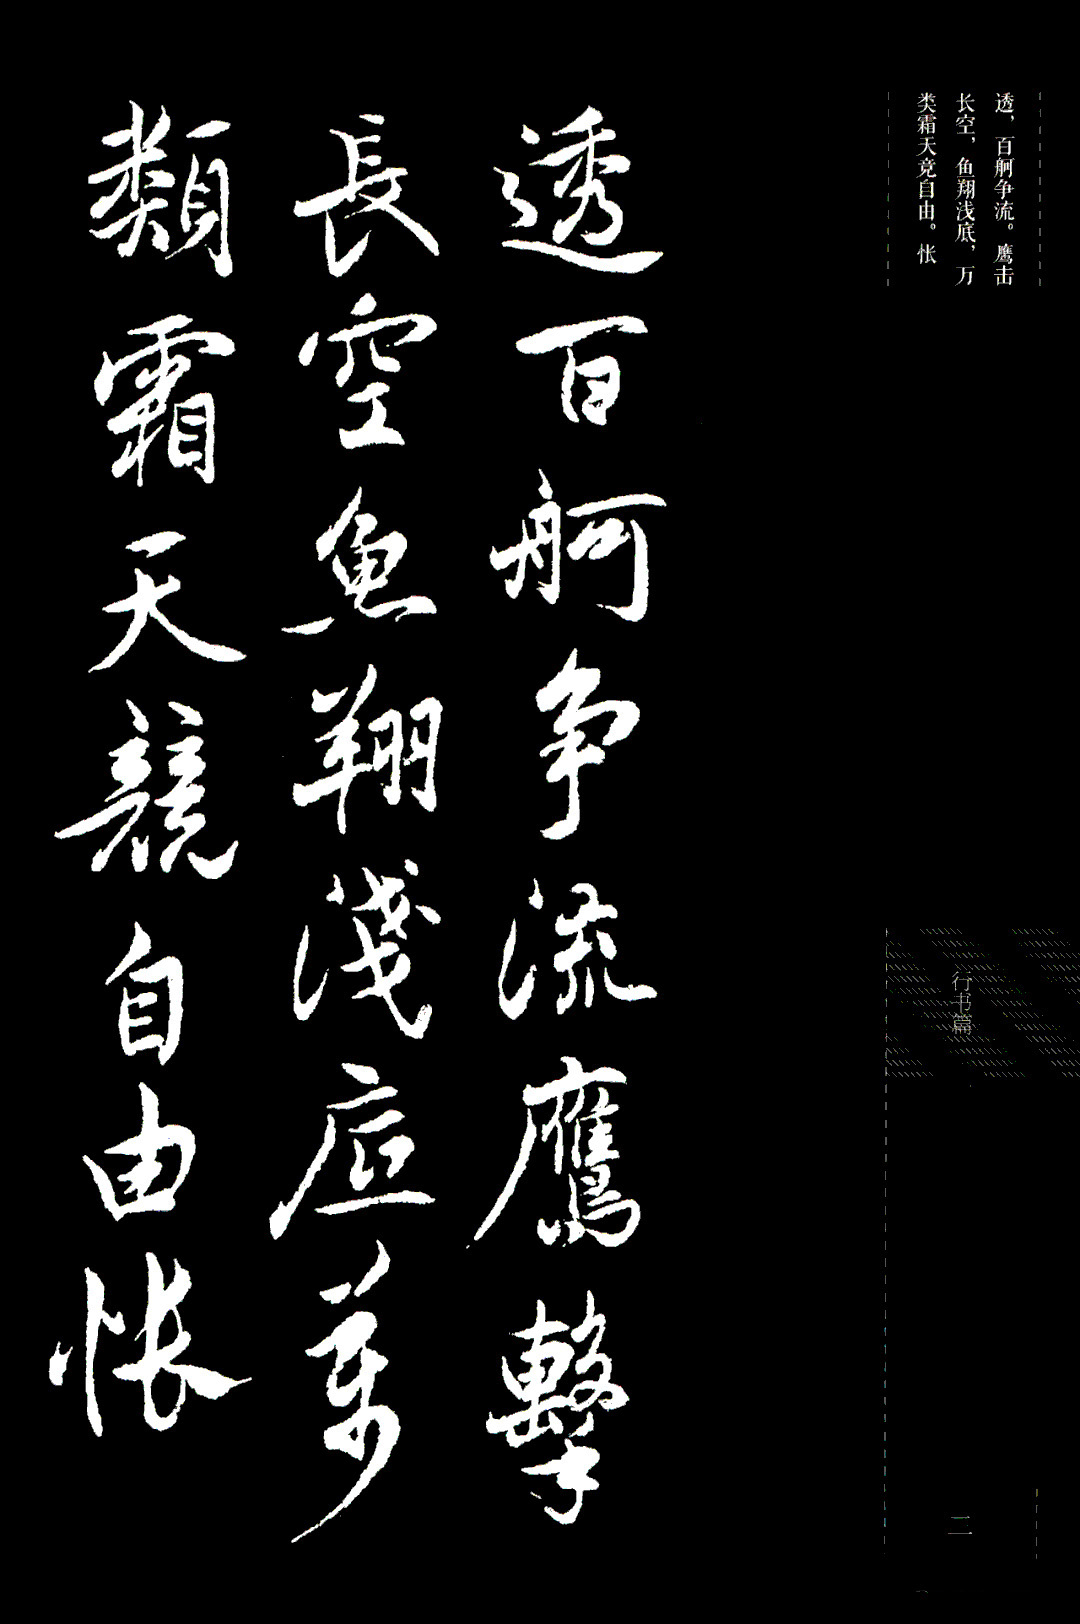 透，百舸争流。鹰击
长空，鱼翔浅底，万
类霜天竞自由。怅
透百舸争流鷹擊
長空魚翔淺底萬
類霜天競自由悵
行书篇
三